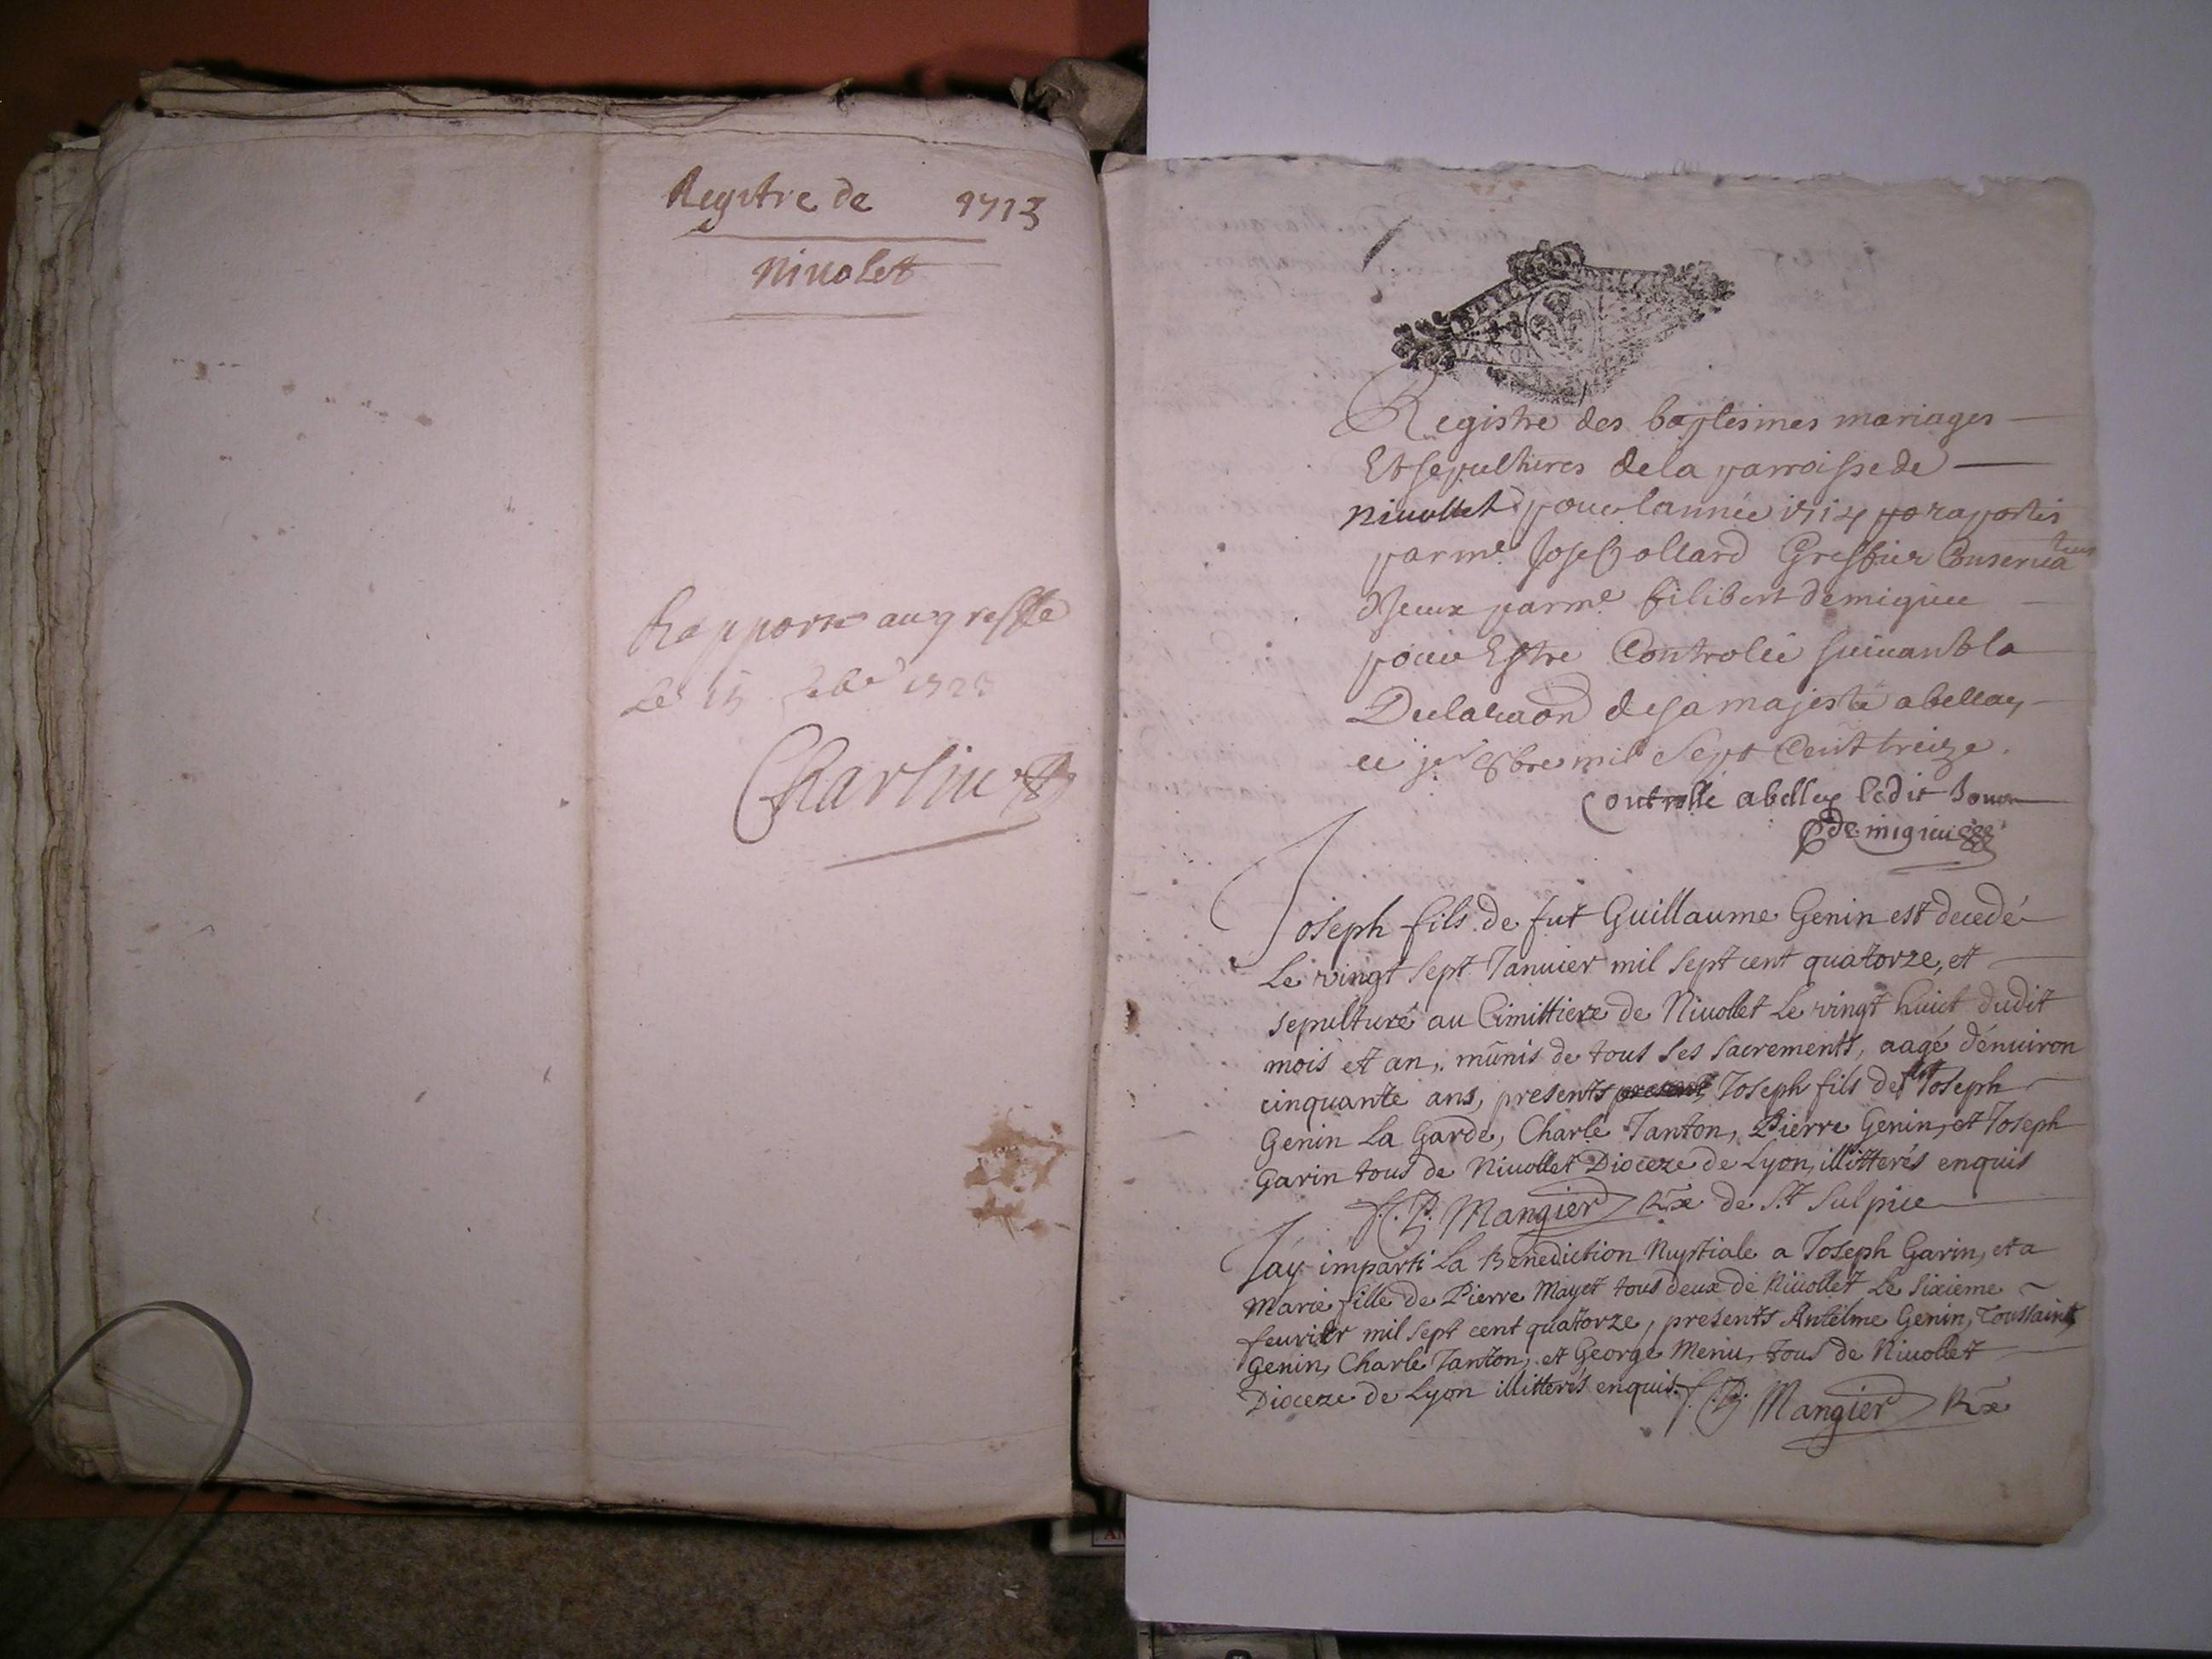 Regstre de 1713
Nivolett
Rapporte au greffe
Le 15
Charlin
Registre des baptesmes mariages
Et sepultures de la parroisse de
Nivollet pour lannée 1714 raportés
par me. Jose ollard Greffier Conserva teur
d'Jeux par me filibert demigieu
pour Estre Controlée suivant la
Declaraon de sa majesté a belley
ce jer 8bre mil Sept Cent treize.
Controllé a belley ledit Jour
de migieu
Joseph fils de fut Guillaume Genin est decedé
Le vingt sept Januier mil sept cent quatorze, et
sepulturé au Cimittiere de Niuollet Le vingt huict dudit
mois et an, munis de tous ses sacrements, aagé d'enuiron
cinquante ans, presents Joseph fils de fut Joseph
Genin La Garde, Charle Tanton, Pierre Genin, et Joseph
Garin tous de Niuollet Dioceze de Lyon, illitterés enquis
Mangier Re de St Sulpice
J'ay imparti La Benediction Nuptiale a Joseph Garin, et a
Marie fille de Pierre Mayet tous deux de Niuollet Le sixieme
feurier mil sept cent quatorze, presents Antelme Genin, Toussaint
Genin, Charle Tanton, et George Menu, tous de Niuollet
Dioceze de Lyon illitterés enquis.
Mangier Re